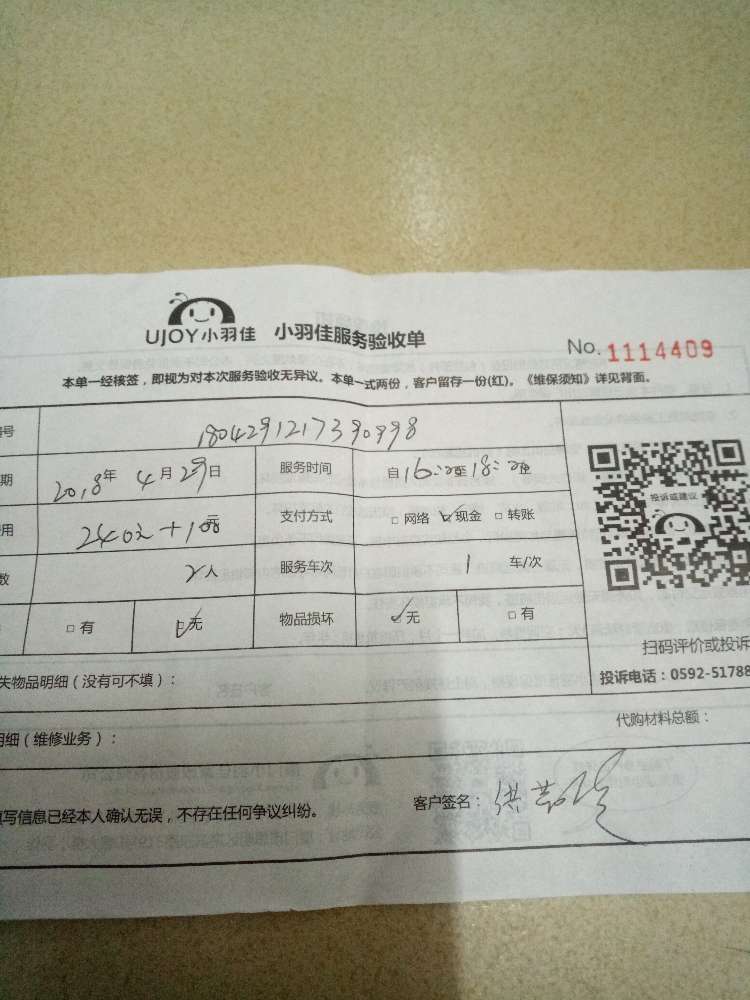 UJOY小羽佳 小羽佳服务验收单
No. 1114409
本单一经核签，即视为对本次服务验收无异议。本单一式两份，客户留存一份(红)。《维保须知》详见背面。
号 1804291217390998
期 2018年 4月29日 服务时间 自16:00至18:00
用 支付方式 □ 网络 ☑ 现金 □ 转账
数 2人 服务车次 1 车/次
□ 有 ☑ 无 物品损坏 ☑ 无 □ 有
投诉或建议
扫码评价或投诉
失物品明细（没有可不填）：
投诉电话：0592-51788
代购材料总额：
明细（维修业务）：
填写信息已经本人确认无误，不存在任何争议纠纷。
客户签名：洪